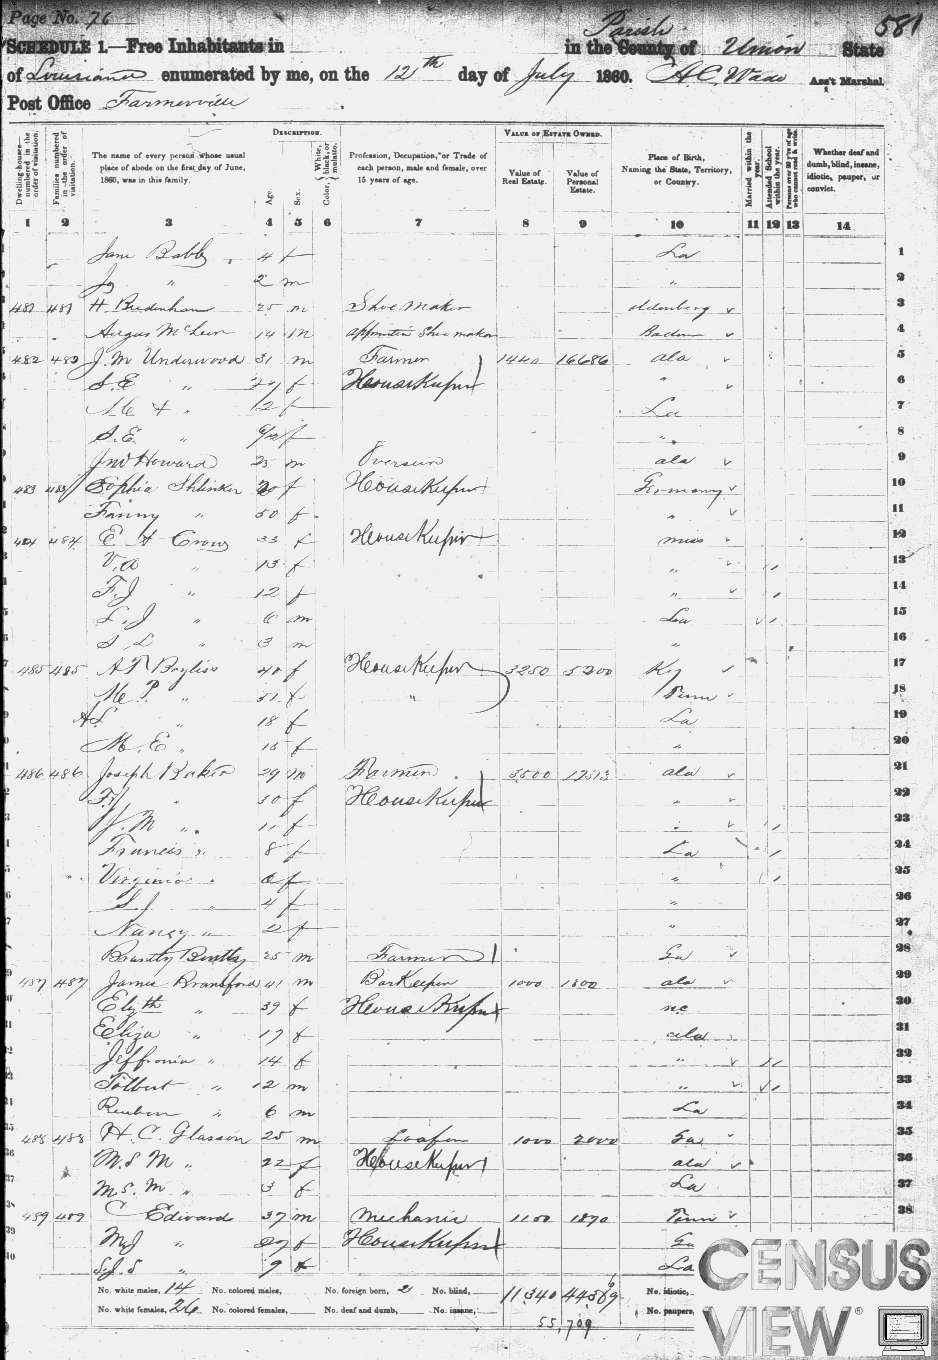 Page No. 76
581
SCHEDULE 1.—Free Inhabitants in in the County of Parish Union State
of Louisiana enumerated by me, on the 12th day of July 1860. A.C. Wade Ass't Marshal
Post Office Farmerville
DESCRIPTION. VALUE OF ESTATE OWNED.
Dwelling-houses—numbered in the order of visitation. Families numbered in the order of visitation. The name of every person whose usual place of abode on the first day of June, 1860, was in this family. Age. Sex. Color, White, black, or mulatto. Profession, Occupation, or Trade of each person, male and female, over 15 years of age. Value of Real Estate. Value of Personal Estate. Place of Birth, Naming the State, Territory, or Country. Married within the year. Attended School within the year. Persons over 20 y'rs of age who cannot read & write. Whether deaf and dumb, blind, insane, idiotic, pauper, or convict.
1 2 3 4 5 6 7 8 9 10 11 12 13 14
Jane Babb 4 f La 1
2 m " 2
481 481 H. Bredenham 25 m Shoe Maker Oldenberg 3
Angus 14 m Shoe maker 4
482 482 J. M Underwood 31 m Farmer 1440 16686 ala 5
S. E " f HouseKeeper " 6
" 12 f La 7
S. E. " f " 8
Jno Howard 25 m Overseer ala 9
483 483 Sophia Shlinker f HouseKeeper Germany 10
Fanny " 50 f " 11
484 484 E Crow 33 f HouseKeeper miss 12
V. A " 13 f " 13
F. J " 12 f " 14
L. J " 6 m La 15
S L " 3 m " 16
485 485 Bayliss 40 f HouseKeeper 3250 5200 Ky 17
P. " f " Tenn 18
" 18 f La 19
M. E " 15 f " 20
486 486 Joseph 29 m Farmer 3500 ala 21
" 30 f HouseKeeper " 22
J. M " 11 f " 23
Francis " 8 f La 24
Virginia " 6 f " 25
S. J. " 4 f " 26
Nancy " 2 f " 27
25 m Farmer Ga 28
487 487 James Bransford 41 m BarKeeper 1000 1300 ala 29
" 39 f HouseKeeper n c 30
Eliza " 17 f ala 31
Jeffronia " 14 f " 32
Tolbert " 12 m " 33
Reuben " 6 m La 34
488 488 H. C. Glasson 25 m Loafer 1000 2000 Ga 35
M. S M " 22 f HouseKeeper ala 36
M S. M " 3 f La 37
489 489 C Edwards 37 m Mechanic 1150 1890 Tenn 38
M J " 27 f HouseKeeper Ga
S. J. S " 9 f La
No. white males, 14 No. colored males, No. foreign born, 2 No. blind, 11340 44369 No. idiotic,
No. white females, 26 No. colored females, No. deaf and dumb, No. insane, No. paupers,
55,709
CENSUS
VIEW®